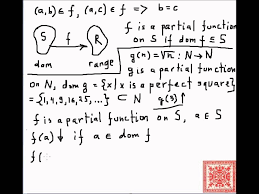 (a,b) ∈ f, (a,c) ∈ f => b = c
f is a partial function
on S if dom f ⊆ S
S f R
dom range
g(n) = √n : N → N
g is a partial function
on N, dom g = {x | x is a perfect square}
= {1,4,9,16,25,...} ⊂ N g(3) ↑
f is a partial function on S, a ∈ S
f(a) ↓ if a ∈ dom f
f(